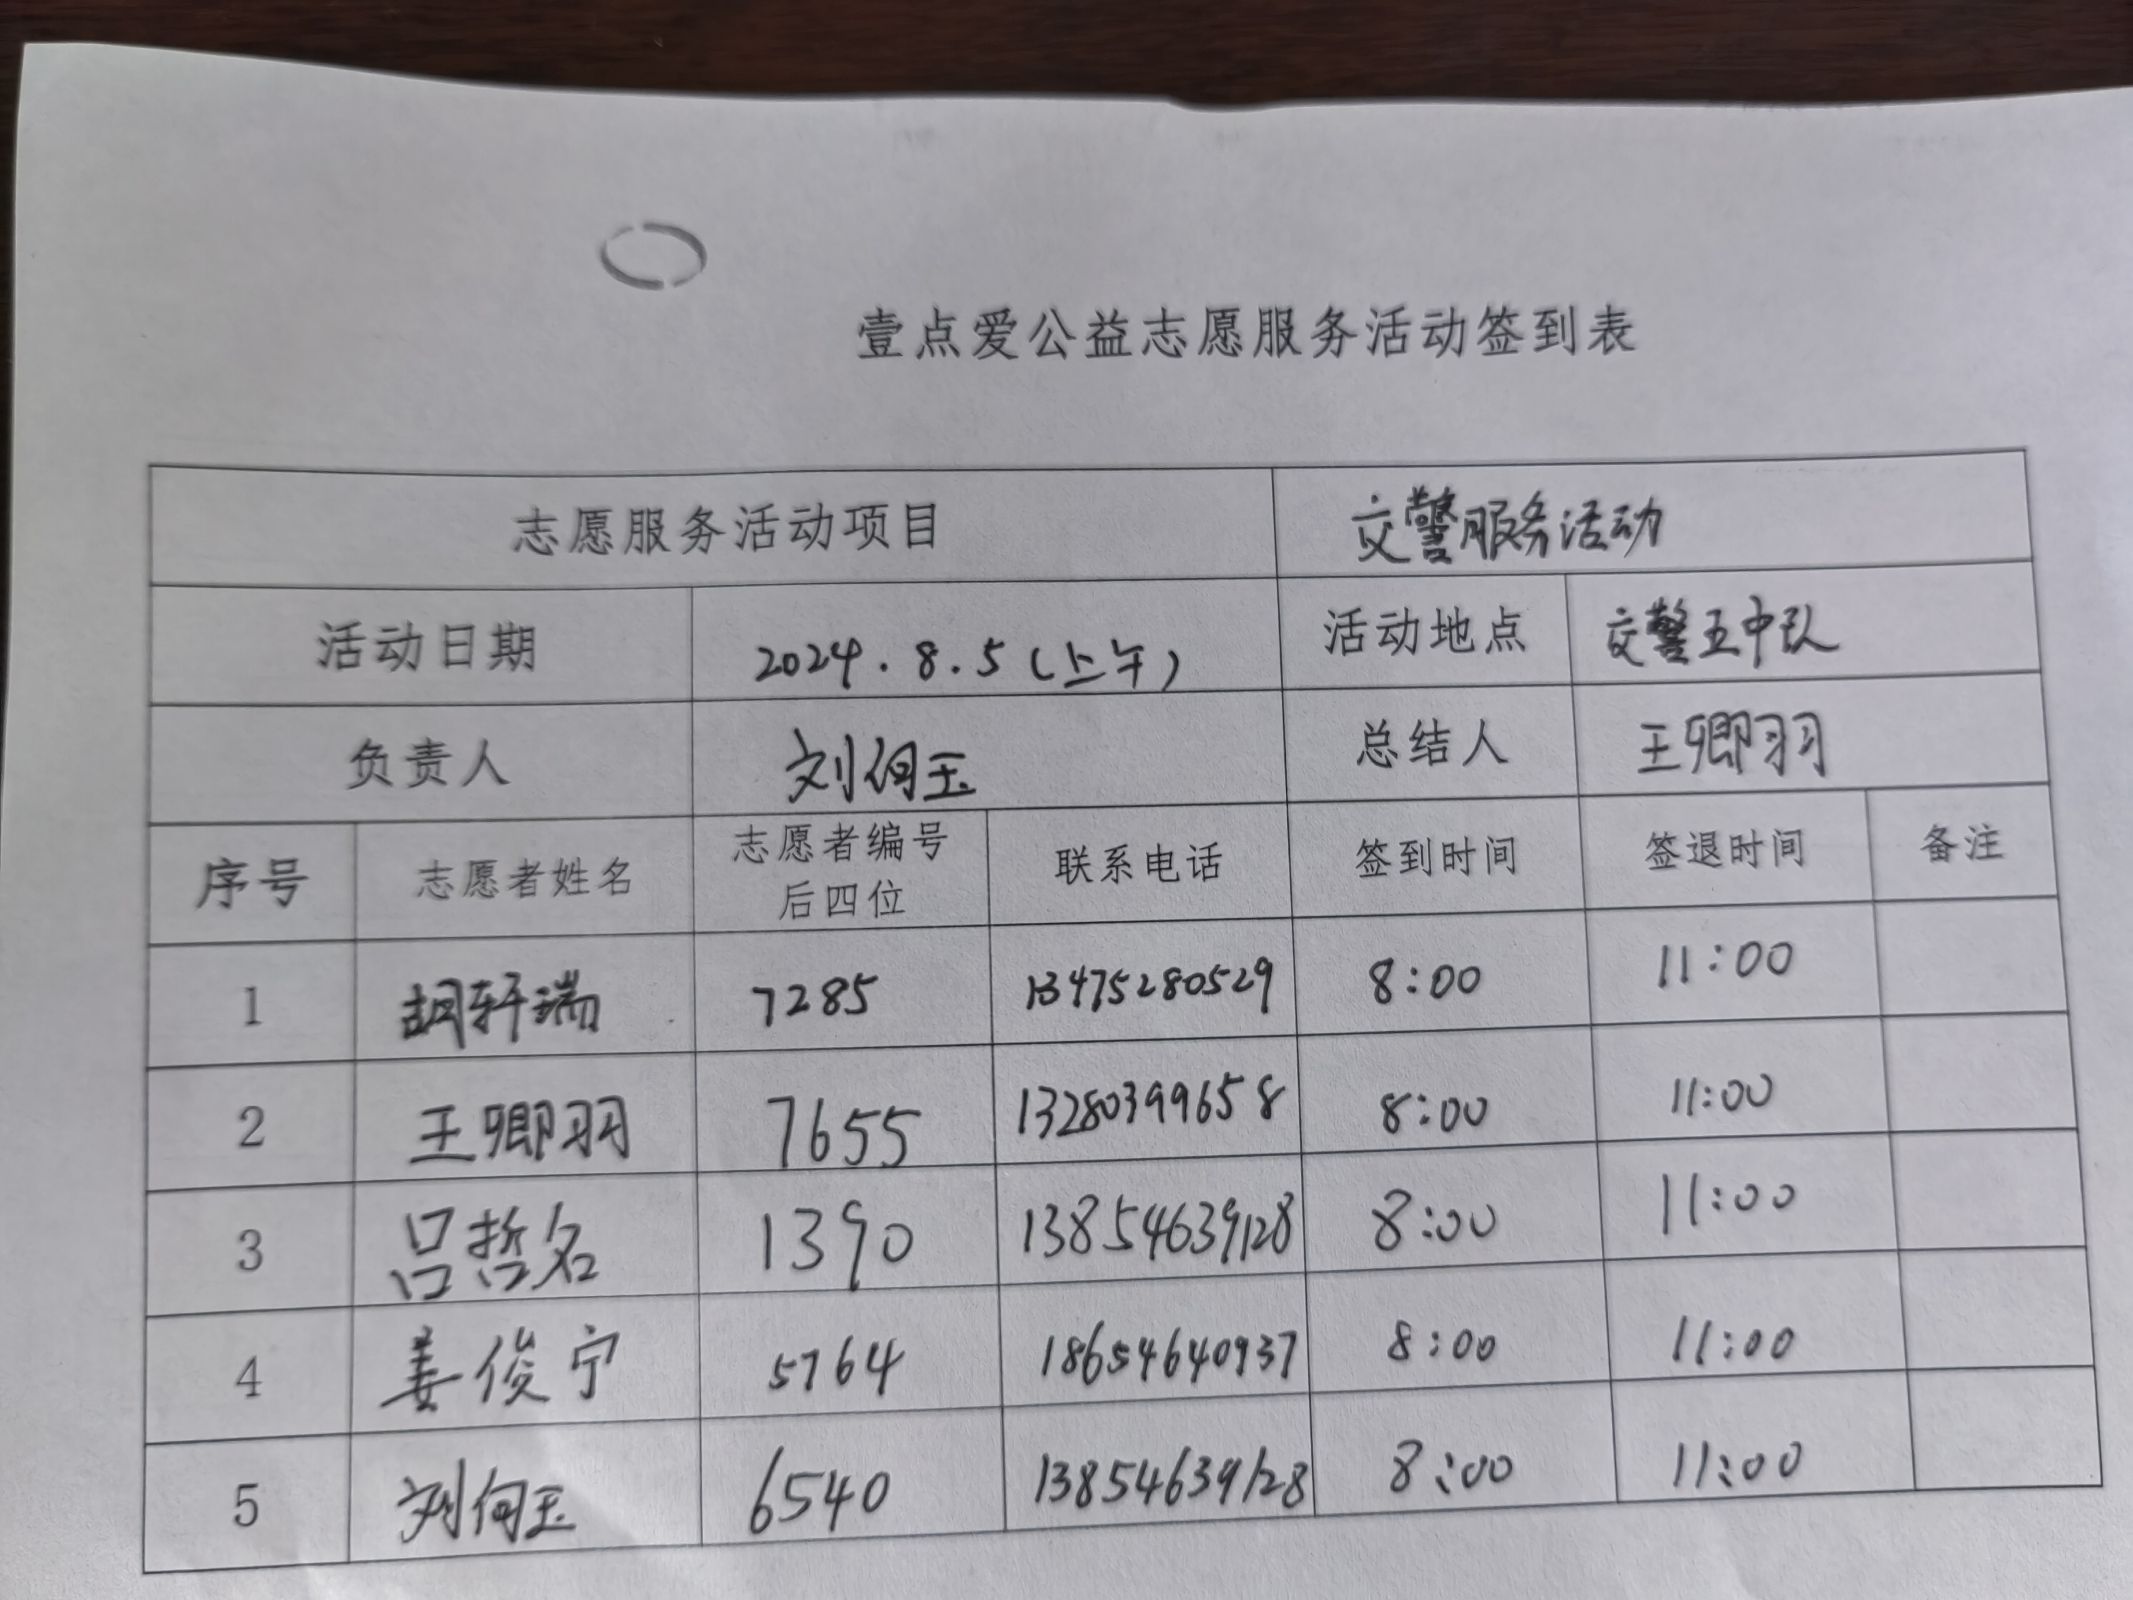 壹点爱公益志愿服务活动签到表
志愿服务活动项目 交警服务活动
活动日期 2024.8.5(上午) 活动地点 交警五中队
负责人 刘何玉 总结人 王卿羽
序号 志愿者姓名 志愿者编号后四位 联系电话 签到时间 签退时间 备注
1 胡轩瑞 7285 13475280529 8:00 11:00
2 王卿羽 7655 13280399658 8:00 11:00
3 吕哲名 1390 13854639128 8:00 11:00
4 姜俊宁 5764 18654640937 8:00 11:00
5 刘何玉 6540 13854639128 8:00 11:00